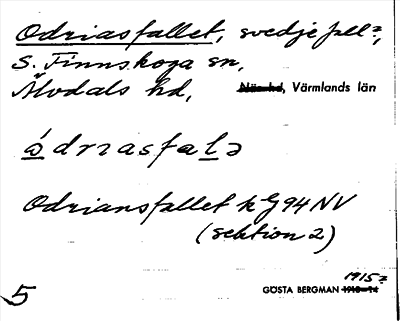 Odriasfallet, svedjefall?,
S. Finnskoga sn,
Älvdals hd, Näs hd, Värmlands län
ó drıasfalə
Odriansfallet k G 94 NV
(sektion 2)
1915?
5 GÖSTA BERGMAN 1913–14